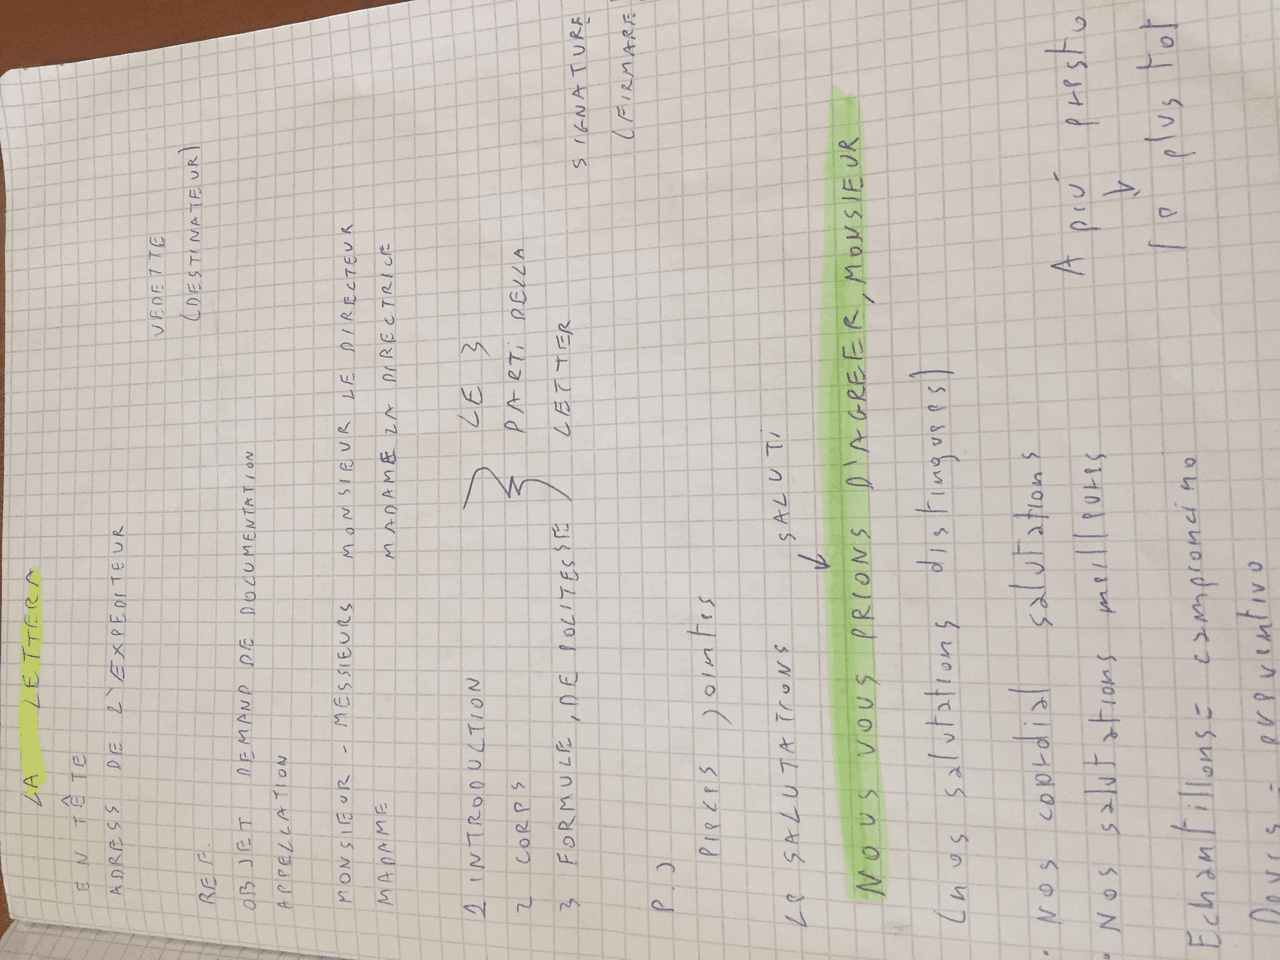 LA LETTERA
EN TÊTE
ADRESS DE L'EXPEDITEUR
VEDETTE
(DESTINATEUR)
REF.
OBJET DEMAND DE DOCUMENTATION
APPELLATION
MONSIEUR - MESSIEURS MONSIEUR LE DIRECTEUR
MADAME MADAME LA DIRECTRICE
1 INTRODUCTION LE 3
2 CORPS PARTI DELLA
3 FORMULE, DE POLITESSE LETTER
SIGNATURE
(FIRMARE)
P.J
pieces jointes
Le SALUTATIONS SALUTI
NOUS VOUS PRIONS D'AGREER, MONSIEUR
(nos salutations distinguees)
• Nos cordial salutations
• Nos salutations meilleures
A più presto
le plus tot
Echantillons = campioncino
Devis = preventivo